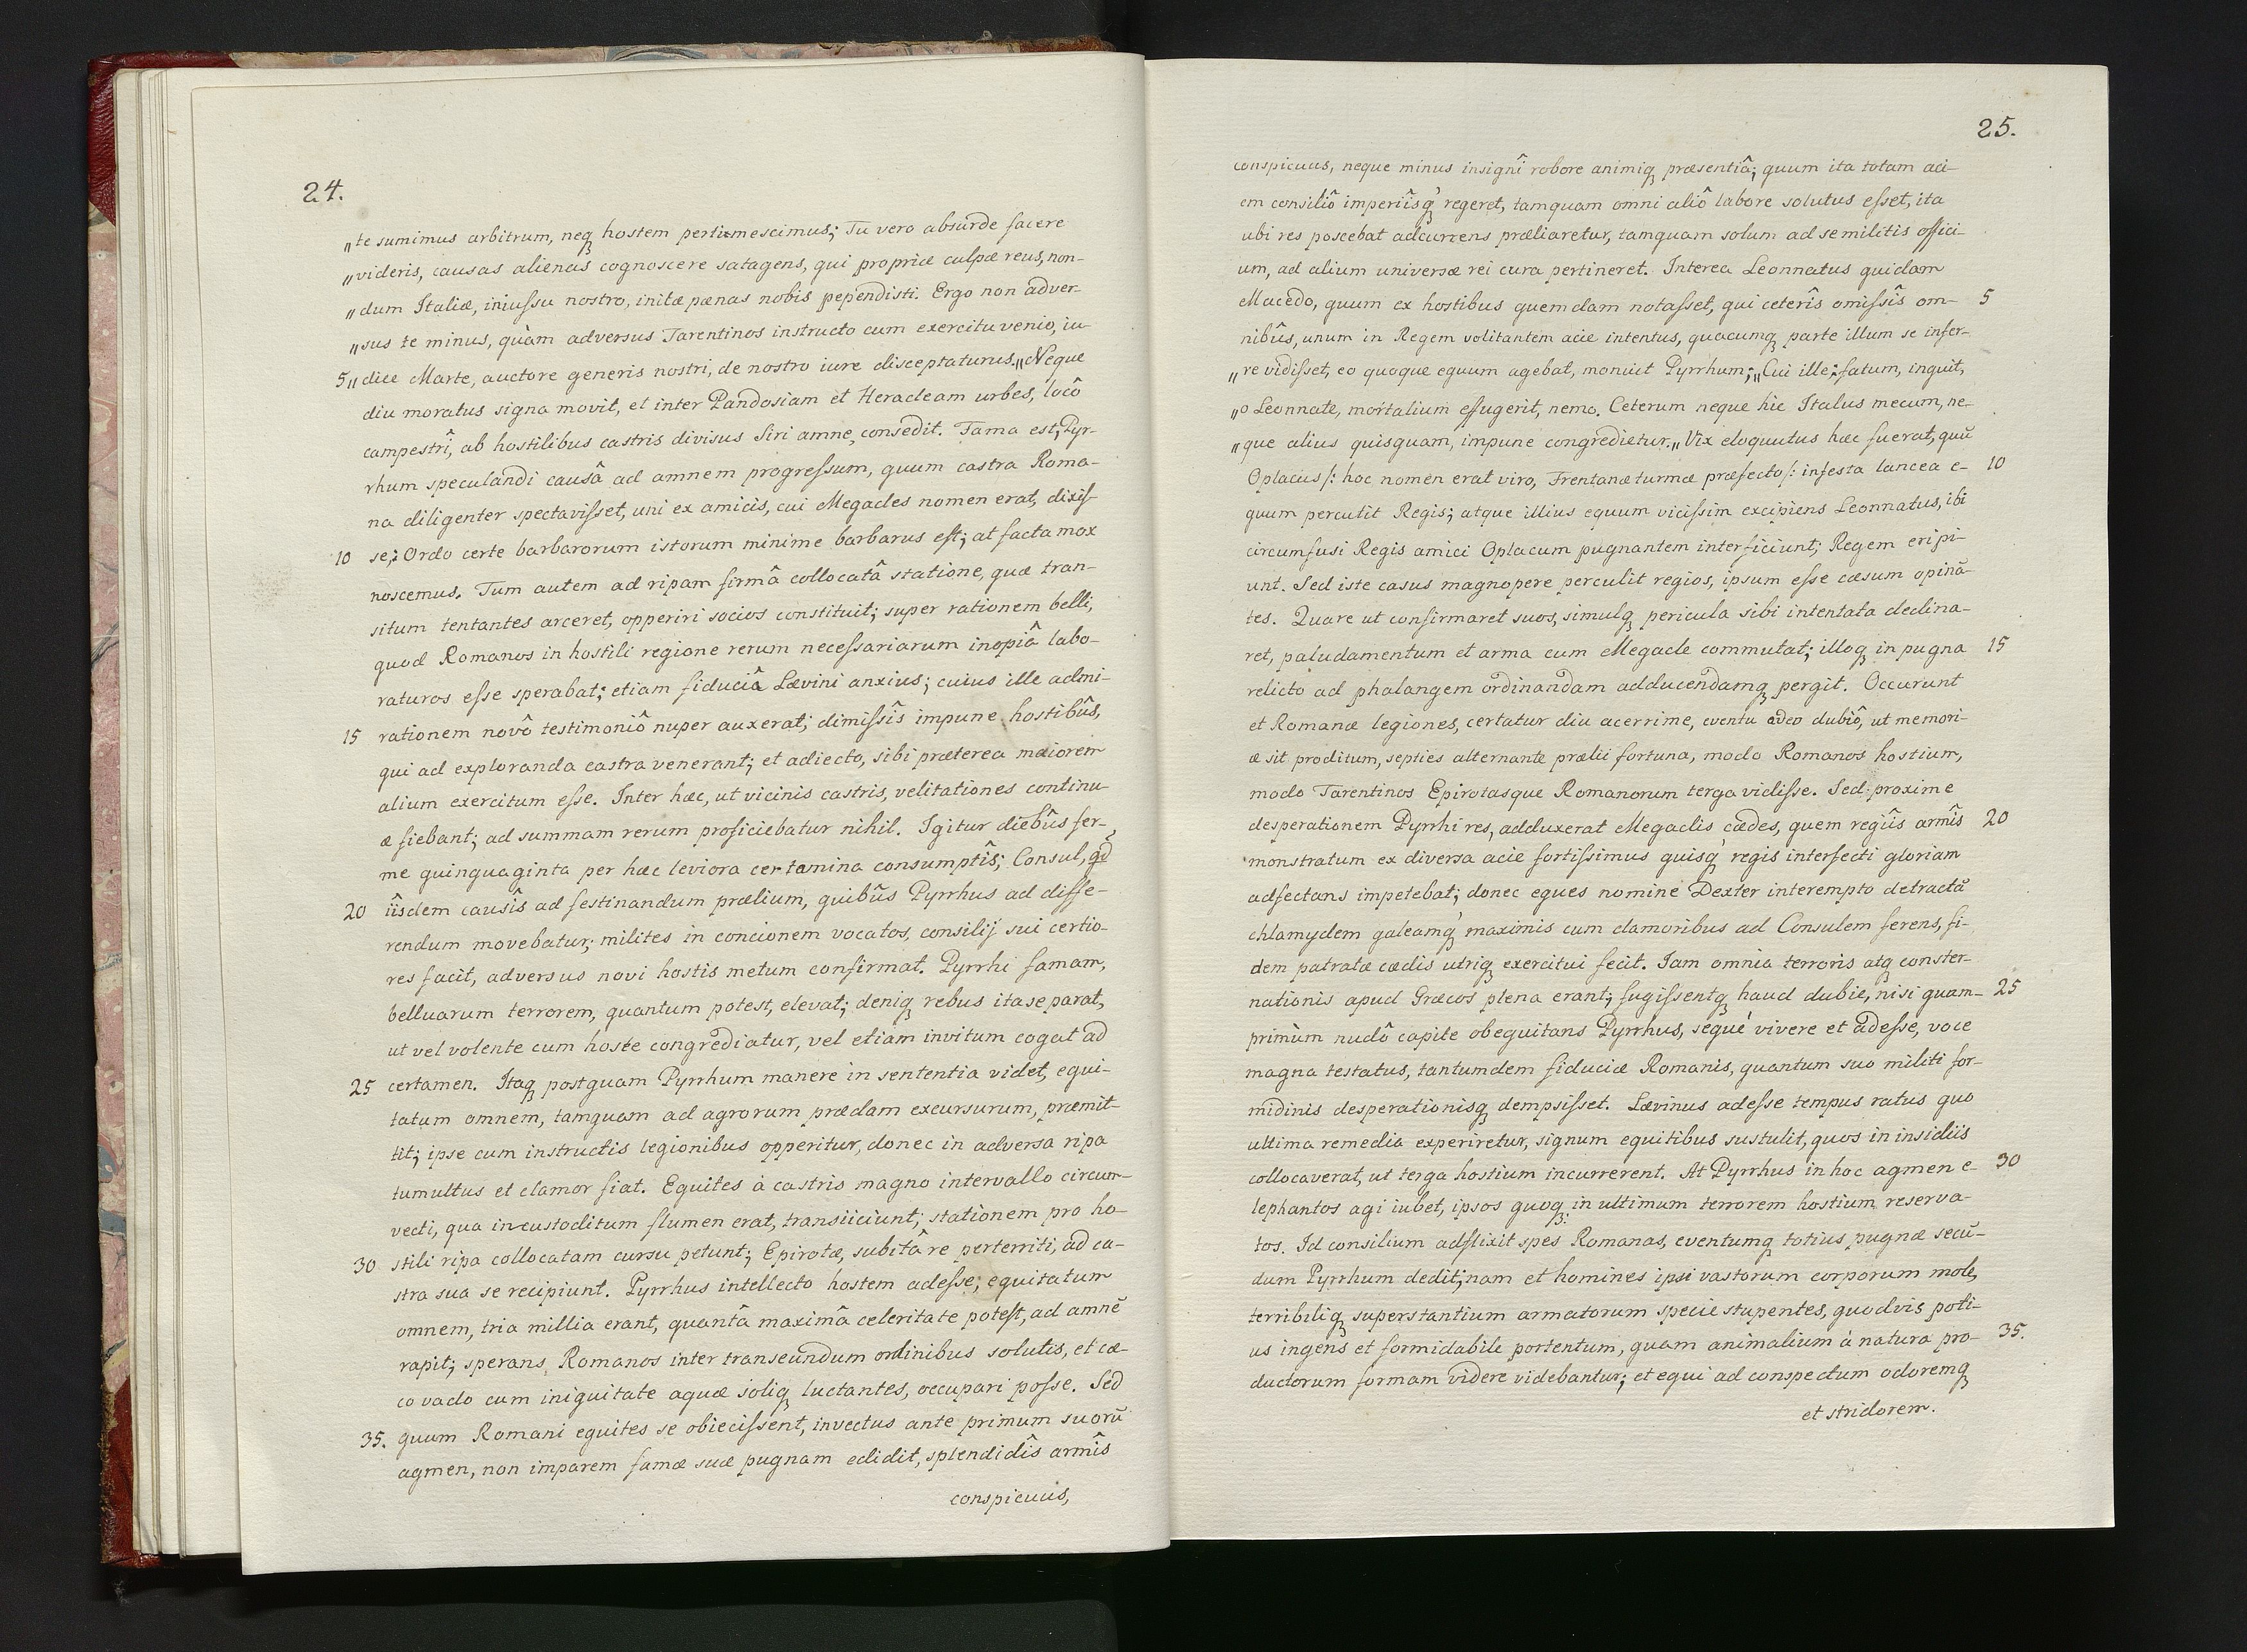 24.
„te sumimus arbitrum, neq₃ hostem pertimescimus; Tu vero absurde facere
„videris, causas alienas cognoscere satagens, qui propriæ culpæ reus, non-
„dum Italiæ, iniussu nostro, initæ pœnas nobis pependisti. Ergo non adver-
„sus te minus, quàm adversus Tarentinos instructo cum exercitu venio, iu-
5 „dice Marte, auctore generis nostri, de nostro iure disceptaturus.„ Neque
diu moratus signa movit, et inter Pandosiam et Heracleam urbes, locô
campestrî, ab hostilibus castris divisus Siri amne, consedit. Fama est, Pyr-
rhum speculandi causâ ad amnem progressum, quum castra Roma-
na diligenter spectavisset, uni ex amicis, cui Megacles nomen erat, dixis-
10 se; Ordo certe barbarorum istorum minime barbarus est; at facta mox
noscemus. Tum autem ad ripam firmâ collocatâ statione, quæ tran-
situm tentantes arceret, opperiri socios constituit; super rationem belli,
quod Romanos in hostili regione rerum necessariarum inopiâ labo-
raturos esse sperabat; etiam fiduciâ Lævini anxius; cuius ille admi-
15 rationem novô testimoniô nuper auxerat; dimissîs impune hostibûs,
qui ad exploranda castra venerant; et adiecto, sibi præterea maiorem
alium exercitum esse. Inter hæc, ut vicinis castris, velitationes continu-
æ fiebant; ad summam rerum proficiebatur nihil. Igitur diebûs fer-
me quinquaginta per hæc leviora certamina consumptîs; Consul, qd
20 iîsdem causîs ad festinandum prælium, quibûs Pyrrhus ad diffe-
rendum movebatur; milites in concionem vocatos, consilij sui certio-
res facit, adversus novi hostis metum confirmat. Pyrrhi famam,
belluarum terrorem, quantum potest, elevat; deniq₃ rebus ita se parat,
ut vel volente cum hoste congrediatur, vel etiam invitum cogat ad
25 certamen. Itaq₃ postquam Pyrrhum manere in sententia videt, equi-
tatum omnem, tamquam ad agrorum prædam excursurum, præmit-
tit; ipse cum instructis legionibus opperitur, donec in adversa ripa
tumultus et clamor fiat. Equites à castris magno intervallo circum-
vecti, qua incustoditum flumen erat, transiiciunt; stationem pro ho-
30 stili ripa collocatam cursu petunt; Epirotæ, subitâ re perterriti, ad ca-
stra sua se recipiunt. Pyrrhus intellecto hostem adesse; equitatum
omnem, tria millia erant, quantâ maximâ celeritate potest, ad amnē
rapit; sperans, Romanos inter transeundum ordinibus solutis, et cæ-
co vado cum iniquitate aquæ soliq₃ luctantes, occupari posse. Sed
35. quum Romani equites se obiecissent, invectus ante primum suorū
agmen, non imparem famæ suæ pugnam edidit, splendidîs armîs
conspicuus,
25.
conspicuus, neque minus insignî robore animiq₃ præsentiâ; quum ita totam aci-
em consiliô imperiîsq₃ regeret, tamquam omni aliô labore solutus esset, ita
ubi res poscebat adcurrens præliaretur, tamquam solum ad se militis offici-
um, ad alium universæ rei cura pertineret. Interea Leonnatus quidam
Macedo, quum ex hostibus quemdam notasset, qui ceterîs omissîs om- 5
nibûs, unum in Regem volitantem acie intentus, quacumq₃ parte illum se infer-
„re vidisset, eo quoque equum agebat, monuit Pyrrhum; „Cui ille; fatum, inquit,
„o Leonnate, mortalium effugerit, nemo. Ceterum neque hic Italus mecum, ne-
„que alius quisquam, impune congredietur.„ Vix eloquutus hæc fuerat, quū
Oplacus /: hoc nomen erat viro, Frentanæ turmæ præfecto /: infesta lancea e- 10
quum percutit Regis; atque illius equum vicissim excipiens Leonnatus, ibi
circumfusi Regis amici Oplacum pugnantem interficiunt; Regem eripi-
unt. Sed iste casus magnopere perculit regios, ipsum esse cæsum opinā-
tes. Quare ut confirmaret suos, simulq₃ pericula sibi intentata declina-
ret, paludamentum et arma cum Megacle commutat; illoq₃ in pugna 15
relicto ad phalangem ordinandam adducendamq₃ pergit. Occurunt
et Romanæ legiones, certatur diu acerrime, eventu adeo dubiô, ut memori-
æ sit proditum, septies alternante prælii fortuna, modo Romanos hostium,
modo Tarentinos Epirotasque Romanorum terga vidisse. Sed proxime
desperationem Pyrrhi res, adduxerat Megaclis cædes, quem regiîs armîs 20
monstratum ex diversa acie fortissimus quisq₃ regis interfecti gloriam
adfectans impetebat; donec eques nomine Dexter interempto detractā
chlamydem galeamq₃ maximis cum clamoribus ad Consulem ferens, fi-
dem patratæ cædis utriq₃ exercitui fecit. Iam omnia terroris atq₃ conster-
nationis apud Græcos plena erant; fugissentq₃ haud dubie, nisi quam- 25
primùm nudô capite obequitans Pyrrhus, sequé vivere et adesse, voce
magna testatus, tantumdem fiduciæ Romanis, quantum suo militi for-
midinis desperationisq₃ dempsisset. Lævinus adesse tempus ratus quo
ultima remedia experiretur, signum equitibus sustulit, quos in insidiis
collocaverat, ut terga hostium incurrerent. At Pyrrhus in hoc agmen e- 30
lephantos agi iubet, ipsos quoq₃: in ultimum terrorem hostium reserva-
tos. Id consilium adflixit spes Romanas, eventumq₃ totius pugnæ secū-
dum Pyrrhum dedit; nam et homines ipsi vastorum corporum mole,
terribiliq₃ superstantium armatorum specie stupentes, quodvis poti-
us ingens et formidabile portentum, quam animalium à natura pro- 35.
ductorum formam videre videbantur; et equi ad conspectum odoremq₃
et stridorem.